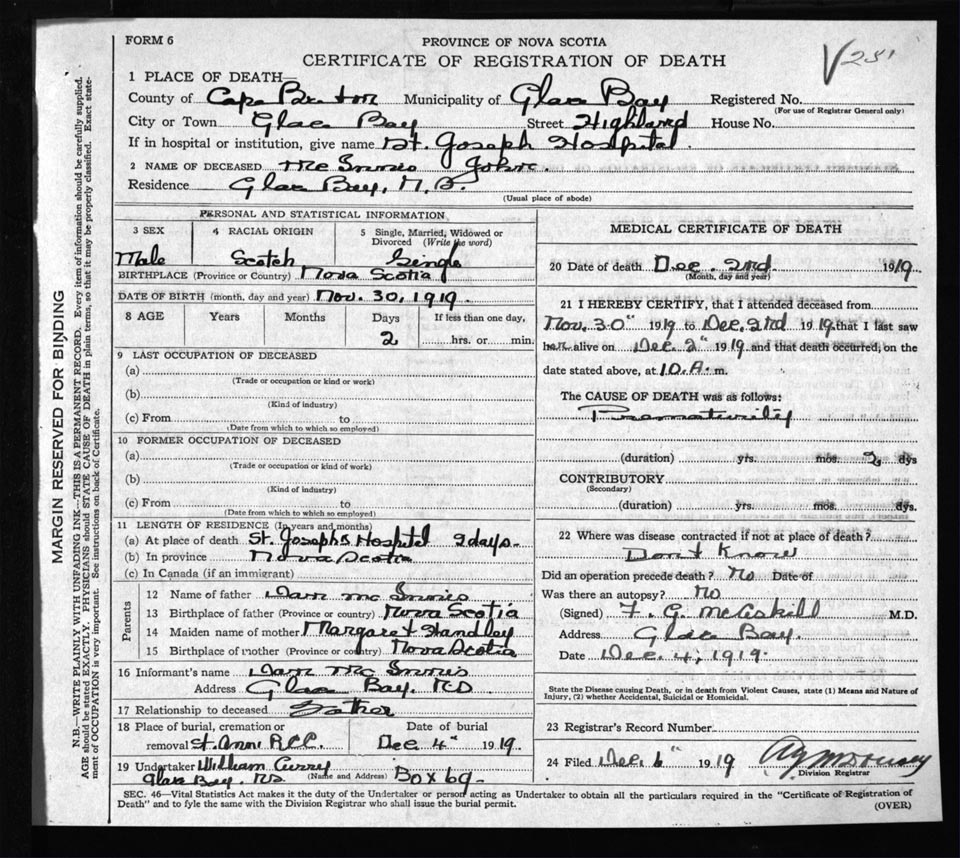 FORM 6
PROVINCE OF NOVA SCOTIA
CERTIFICATE OF REGISTRATION OF DEATH
1 PLACE OF DEATH—
County of Cape Breton Municipality of Glace Bay Registered No.
(For use of Registrar General only)
City or Town Glace Bay Street Highland House No.
If in hospital or institution, give name St. Joseph Hospital.
2 NAME OF DECEASED Mc Innis John.
Residence Glace Bay, N.S.
(Usual place of abode)
PERSONAL AND STATISTICAL INFORMATION
3 SEX
4 RACIAL ORIGIN
5 Single, Married, Widowed or
Divorced (Write the word)
Male Scotch Single
BIRTHPLACE (Province or Country) Nova Scotia
DATE OF BIRTH (month, day and year) Nov. 30, 1919.
8 AGE Years Months Days If less than one day,
2 hrs. or min.
9 LAST OCCUPATION OF DECEASED
(a)
(Trade or occupation or kind or work)
(b)
(Kind of industry)
(c) From to
(Date from which to which so employed)
10 FORMER OCCUPATION OF DECEASED
(a)
(Trade or occupation or kind of work)
(b)
(Kind of industry)
(c) From to
(Date from which to which so employed)
11 LENGTH OF RESIDENCE (In years and months)
(a) At place of death St. Josephs Hospital 2 days.
(b) In province Nova Scotia
(c) In Canada (if an immigrant)
Parents
12 Name of father Dan Mc Innis
13 Birthplace of father (Province or country) Nova Scotia
14 Maiden name of mother Margaret Handley
15 Birthplace of mother (Province or country) Nova Scotia
16 Informant's name Dan Mc Innis
Address Glace Bay. N.S
17 Relationship to deceased Father
18 Place of burial, cremation or
removal St. Anns R.C.C.
Date of burial
Dec 4" 1919.
19 Undertaker William Curry
Glace Bay. N.S (Name and Address) Box 69-
MEDICAL CERTIFICATE OF DEATH
20 Date of death Dec. 2nd. 1919.
(Month, day and year)
21 I HEREBY CERTIFY, that I attended deceased from
Nov. 30" 1919 to Dec. 2nd 1919 that I last saw
him alive on Dec 2" 1919 and that death occurred, on the
date stated above, at 10.A. m.
The CAUSE OF DEATH was as follows:
Prematurity
(duration) yrs. mos. 2 dys
CONTRIBUTORY
(Secondary)
(duration) yrs. mos. dys.
22 Where was disease contracted if not at place of death?
Don't Know
Did an operation precede death? No Date of
Was there an autopsy? No
(Signed) F. G. McAskill M.D.
Address Glace Bay.
Date Dec 4, 1919.
State the Disease causing Death, or in death from Violent Causes, state (1) Means and Nature of
Injury, (2) whether Accidental, Suicidal or Homicidal.
23 Registrar's Record Number
24 Filed Dec. 6" 1919
Division Registrar
SEC. 46—Vital Statistics Act makes it the duty of the Undertaker or person acting as Undertaker to obtain all the particulars required in the "Certificate of Registration of
Death" and to fyle the same with the Division Registrar who shall issue the burial permit.
(OVER)
MARGIN RESERVED FOR BINDING
N.B.—WRITE PLAINLY WITH UNFADING INK—THIS IS A PERMANENT RECORD. Every item of information should be carefully supplied.
AGE should be stated EXACTLY. PHYSICIANS should STATE CAUSE OF DEATH in plain terms, so that it may be properly classified. Exact state-
ment of OCCUPATION is very important. See instructions on back of Certificate.